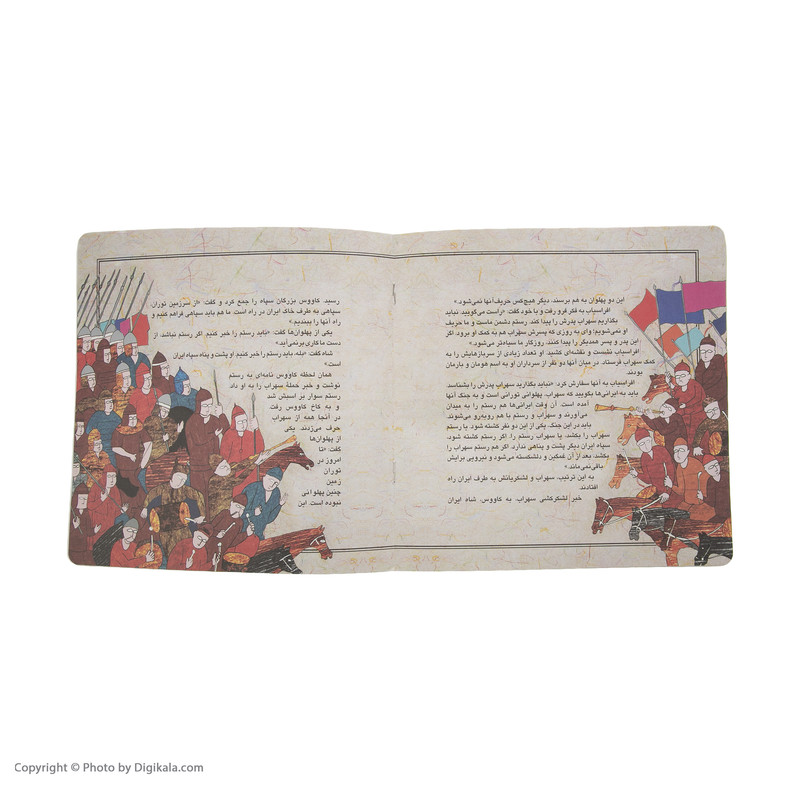 این دو پهلوان به هم برسند، دیگر هیچ‌کس حریف آنها نمی‌شود.»
افراسیاب به فکر فرو رفت و با خود گفت: «راست می‌گویید. نباید
بگذاریم سهراب پدرش را پیدا کند. رستم دشمن ماست و ما حریف
او نمی‌شویم؛ وای به روزی که پسرش سهراب هم به کمک او برود. اگر
این پدر و پسر همدیگر را پیدا کنند، روزگار ما سیاه‌تر می‌شود.»
افراسیاب نشست و نقشه‌ای کشید. او تعداد زیادی از سربازهایش را به
کمک سهراب فرستاد. در میان آنها دو نفر از سرداران او به اسم هومان و بارمان
بودند.
افراسیاب به آنها سفارش کرد: «نباید بگذارید سهراب پدرش را بشناسد.
باید به ایرانی‌ها بگویید که سهراب، پهلوانی تورانی است و به جنگ آنها
آمده است. آن وقت ایرانی‌ها هم رستم را به میدان
می‌آورند و سهراب و رستم با هم روبه‌رو می‌شوند.
باید در این جنگ، یکی از این دو نفر کشته شود. یا رستم
سهراب را بکشد، یا سهراب رستم را. اگر رستم کشته شود،
سپاه ایران دیگر پشت و پناهی ندارد. اگر هم رستم سهراب را
بکشد، بعد از آن غمگین و دلشکسته می‌شود و نیرویی برایش
باقی نمی‌ماند.»
به این ترتیب، سهراب و لشکریانش به طرف ایران راه
افتادند.
خبر لشکرکشی سهراب به کاووس، شاه ایران
رسید. کاووس بزرگان سپاه را جمع کرد و گفت: «از سرزمین توران
سپاهی به طرف خاک ایران در راه است. ما هم باید سپاهی فراهم کنیم و
راه آنها را ببندیم.»
یکی از پهلوان‌ها گفت: «باید رستم را خبر کنیم. اگر رستم نباشد، از
دست ما کاری برنمی‌آید.»
شاه گفت: «بله، باید رستم را خبر کنیم. او پشت و پناه سپاه ایران
است.»
همان لحظه کاووس نامه‌ای به رستم
نوشت و خبر حملهٔ سهراب را به او داد.
رستم سوار بر اسبش شد
و به کاخ کاووس رفت.
در آنجا همه از سهراب
حرف می‌زدند. یکی
از پهلوان‌ها
گفت: «تا
امروز در
توران
زمین
چنین پهلوانی
نبوده است. این
Copyright © Photo by Digikala.com